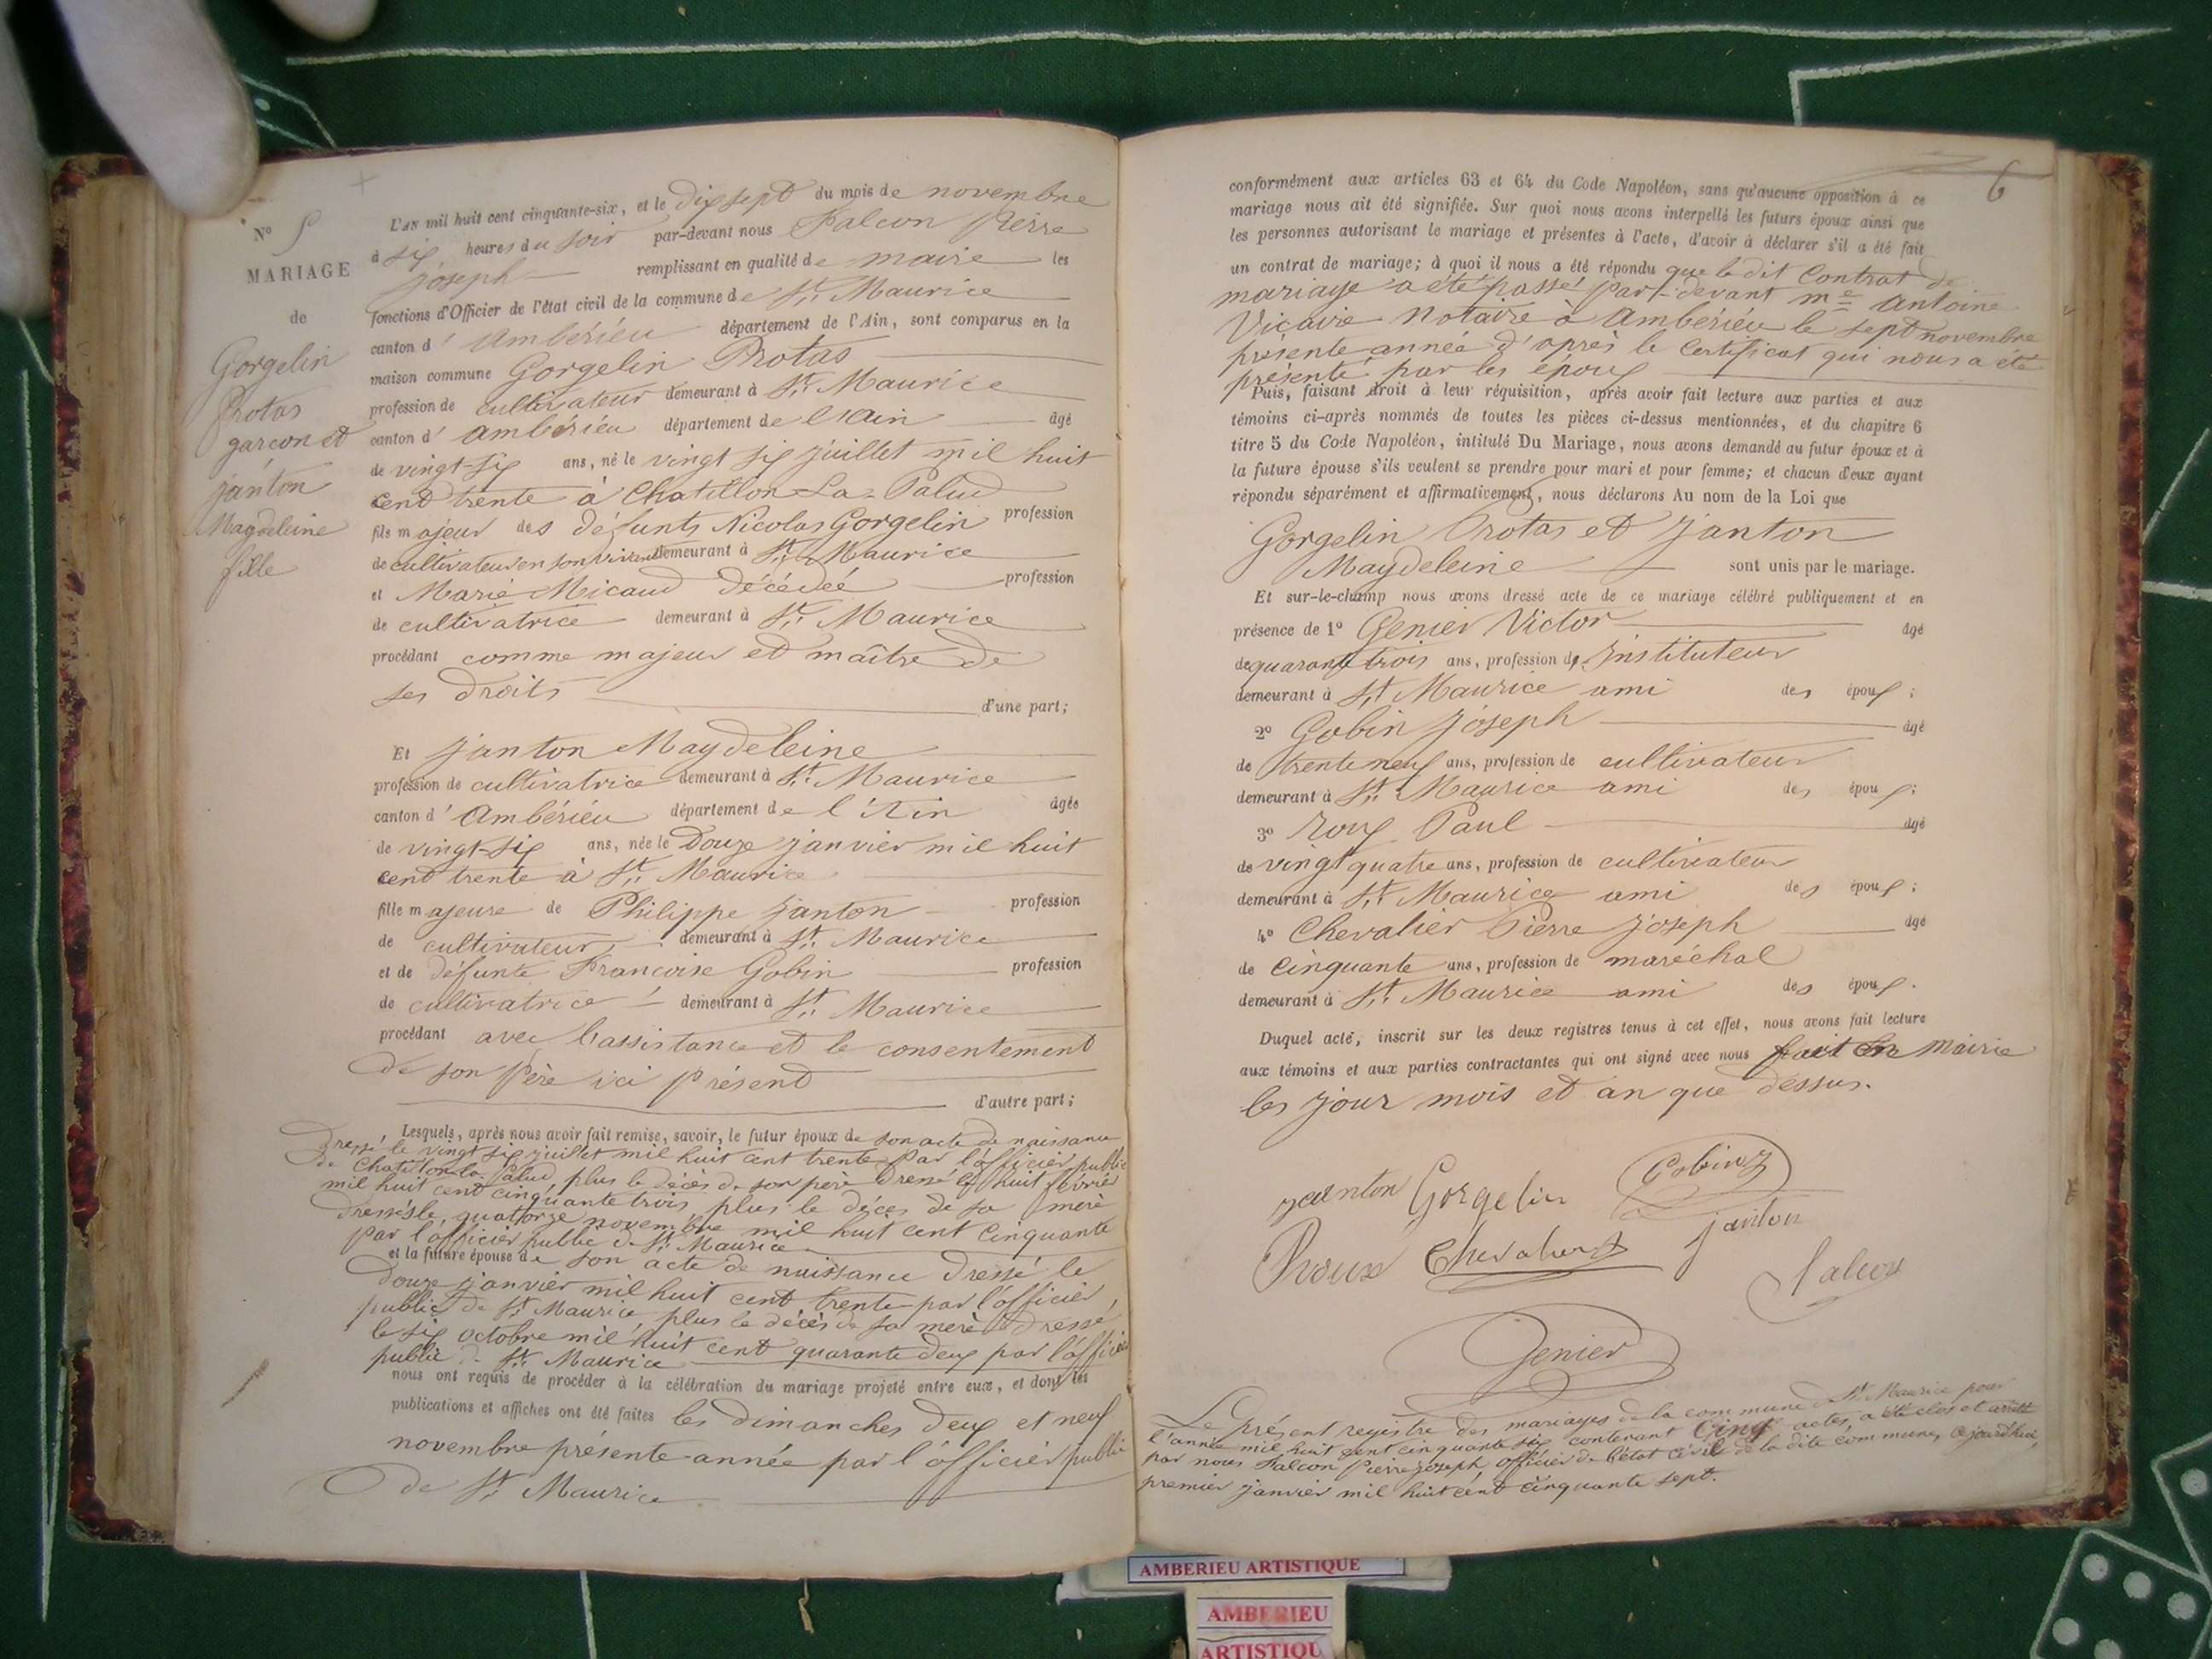 N° 5
MARIAGE
de
Gorgelin
Protas
garçon et
janton
Magdeleine
fille
L'AN mil huit cent cinquante-six, et le dix sept du mois de novembre
à six heures du soir par-devant nous Falcon Pierre
joseph remplissant en qualité de maire les
fonctions d'Officier de l'état civil de la commune de St. Maurice
canton d'Ambérieu département de l'Ain, sont comparus en la
maison commune Gorgelin Protas
profession de cultivateur demeurant à St. Maurice
canton d'ambérieu département de l'Ain âgé
de vingt-six ans, né le vingt six juillet mil huit
cent trente à Chatillon-La-Palud
fils majeur des défunts Nicolas Gorgelin profession
de cultivateur en son vivant demeurant à St. Maurice
et Marie Micaud décédée profession
de cultivatrice demeurant à St. Maurice
procédant comme majeur et maître de
ses droits
d'une part;
Et janton Magdeleine
profession de cultivatrice demeurant à St. Maurice
canton d'Ambérieu département de l'Ain âgée
de vingt-six ans, née le Douze janvier mil huit
cent trente à St. Maurice
fille majeure de Philippe janton profession
de cultivateur demeurant à St. Maurice
et de défunte Francoise Gobin profession
de cultivatrice demeurant à St. Maurice
procédant avec l'assistance et le consentement
de son Père ici présent
d'autre part;
Lesquels, après nous avoir fait remise, savoir, le futur époux de son acte de naissance
Dressé le vingt six juillet mil huit cent trente par l'officier public
de Chatillon-la-Palud, plus le décès de son père dressé le huit février
mil huit cent cinquante trois, plus le décès de sa mère
dressé le quatorze novembre mil huit cent cinquante
par l'officier public de St. Maurice
et la future épouse de son acte de naissance dressé le
douze janvier mil huit cent trente par l'officier
public de St. Maurice, plus le décès de sa mère dressé
le six octobre mil huit cent quarante deux par l'officier
public de St. Maurice
nous ont requis de procéder à la célébration du mariage projeté entre eux, et dont les
publications et affiches ont été faites les dimanches deux et neuf
novembre présente année par l'officier public
de St. Maurice
6
conformément aux articles 63 et 64 du Code Napoléon, sans qu'aucune opposition à ce
mariage nous ait été signifiée. Sur quoi nous avons interpellé les futurs époux ainsi que
les personnes autorisant le mariage et présentes à l'acte, d'avoir à déclarer s'il a été fait
un contrat de mariage; à quoi il nous a été répondu que le dit Contrat de
mariage a été passé par-devant me antoine
Vicaire Notaire à Ambérieu le sept novembre
présente année d'après le Certificat qui nous a été
présenté par les époux
Puis, faisant droit à leur réquisition, après avoir fait lecture aux parties et aux
témoins ci-après nommés de toutes les pièces ci-dessus mentionnées, et du chapitre 6
titre 5 du Code Napoléon, intitulé Du Mariage, nous avons demandé au futur époux et à
la future épouse s'ils veulent se prendre pour mari et pour femme; et chacun d'eux ayant
répondu séparément et affirmativement, nous déclarons Au nom de la Loi que
Gorgelin Protas et janton
Magdeleine sont unis par le mariage.
Et sur-le-champ nous avons dressé acte de ce mariage célébré publiquement et en
présence de 1° Genier Victor âgé
de quarante trois ans, profession de Instituteur
demeurant à St. Maurice ami des époux;
2° Gobin joseph âgé
de trente neuf ans, profession de cultivateur
demeurant à St. Maurice ami des époux;
3° Roux Paul âgé
de vingt quatre ans, profession de cultivateur
demeurant à St. Maurice ami des époux;
4° Chevalier Pierre joseph âgé
de cinquante ans, profession de maréchal
demeurant à St. Maurice ami des époux.
Duquel acte, inscrit sur les deux registres tenus à cet effet, nous avons fait lecture
aux témoins et aux parties contractantes qui ont signé avec nous fait en Mairie
les jour mois et an que dessus.
janton Gorgelin Gobin j
Proux Chevalier janton
Falcon
Genier
Le Présent registre des mariages de la commune de St. Maurice pour
l'année mil huit cent cinquante six contenant Cinq actes, a été clos et arrêté
par nous Falcon Pierre joseph officier de l'état civil de la dite commune, cejourd'hui
premier janvier mil huit cent cinquante sept.
AMBERIEU ARTISTIQUE
AMBERIEU
ARTISTIQU